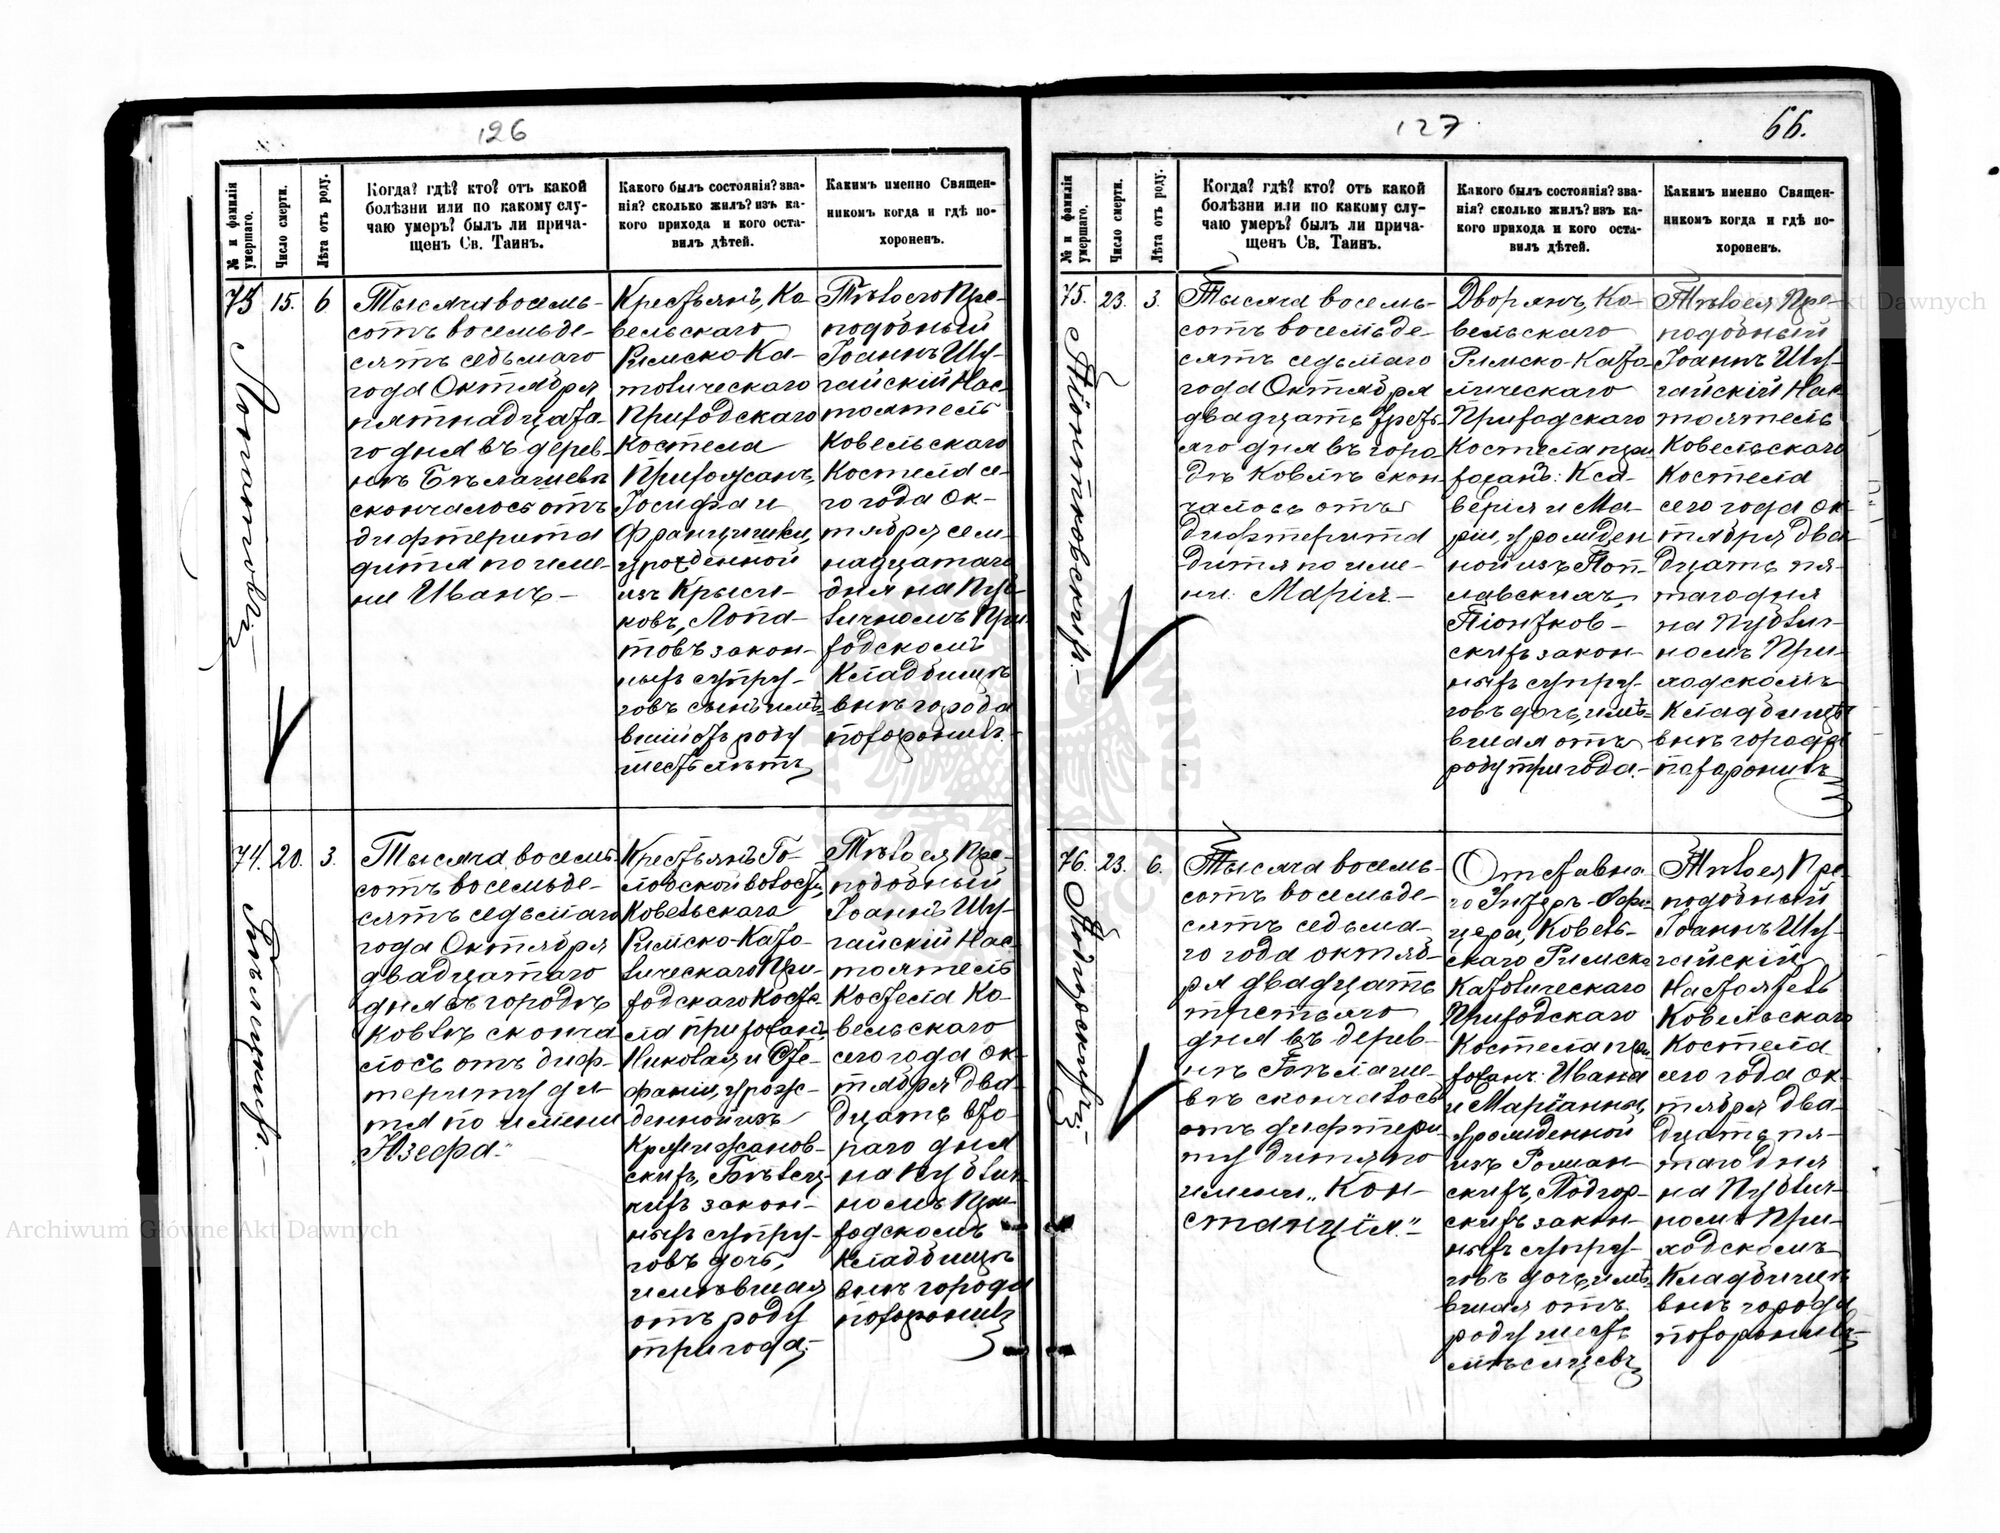 126
№ и фамилія умершаго.
Число смерти.
Лѣта отъ роду.
Когда? гдѣ? кто? отъ какой
болѣзни или по какому слу-
чаю умеръ? былъ ли прича-
щенъ Св. Таинъ.
Какого былъ состоянія? зва-
нія? сколько жилъ? изъ ка-
кого прихода и кого оста-
вилъ дѣтей.
Какимъ именно Священ-
никомъ когда и гдѣ по-
хороненъ.
73
15.
6
Тысяча восемь-
сотъ восемьде-
сятъ седьмаго
года Октября
пятнадцата-
го дня въ дерев-
нѣ Бѣлашевѣ
скончалось отъ
дифтерита
дитя по име-
ни Иванъ-
Крестьянъ, Ко-
вельскаго
Римско-Ка-
толическаго
Приходскаго
Костела
Прихожанъ,
Іосифа и
Францишки,
урожденной
изъ Крыси-
ковъ, Лопа-
товъ закон-
ныхъ супру-
говъ сынъ имѣ-
вшій отъ роду
шесть лѣтъ
Тѣло его Пре-
подобный
Іоаннъ Шу-
гайскій Нас-
тоятель
Ковельскаго
Костела се-
го года Ок-
тября сем-
надцатаго
дня на Пуб-
личномъ При-
ходскомъ
Кладбищѣ
внѣ города
похоронилъ.
74.
20.
3.
Бѣлицкихъ.-
Тысяча восемь-
сотъ восемьде-
сятъ седьмаго
года Октября
двадцатаго
дня въ городѣ
Ковлѣ сконча
лось отъ диф-
териту ди-
тя по имени
„Юзефа."
Крестьянъ Го-
лобской волости,
Ковельскаго
Римско-Като-
лическаго При-
ходскаго Косте-
ла прихожанъ,
Николая и Сте-
фаніи, урож-
денной изъ
Кржижанов-
скихъ, Бѣлиц-
кихъ закон-
ныхъ супру-
говъ дочь,
имѣвшая
отъ роду
три года.-
Тѣло ея Пре-
подобный
Іоаннъ Шу-
гайскій Нас-
тоятель
Костела Ко-
вельскаго
сего года Ок-
тября два-
дцать вто-
раго дня
на Публич-
номъ При-
ходскомъ
Кладбищѣ
внѣ города
похоронилъ
127
66.
№ и фамилія умершаго.
Число смерти.
Лѣта отъ роду.
Когда? гдѣ? кто? отъ какой
болѣзни или по какому слу-
чаю умеръ? былъ ли прича-
щенъ Св. Таинъ.
Какого былъ состоянія? зва-
нія? сколько жилъ? изъ ка-
кого прихода и кого оста-
вилъ дѣтей.
Какимъ именно Священ-
никомъ когда и гдѣ по-
хороненъ.
75.
23.
3.
Піонтковскихъ.-
Тысяча восемь-
сотъ восемьде-
сятъ седьмаго
года Октября
двадцать треть-
яго дня въ горо-
дѣ Ковлѣ скон
чалось отъ
дифтерита
дитя по име-
ни: Марія.-
Дворянъ, Ко-
вельскаго
Римско-Като-
лическаго
Приходскаго
Костела при
хожанъ: Кса-
верія и Ма-
ріи, урожден
ной изъ Поп-
лавскихъ,
Піонтков-
скихъ закон-
ныхъ супру-
говъ дочь, имѣ-
вшая отъ
роду три года.-
Тѣло ея Пре-
подобный
Іоаннъ Шу-
гайскій Нас-
тоятель
Ковельскаго
Костела
сего года Ок-
тября два-
дцать пя-
таго дня
на Публич-
номъ При-
ходскомъ
Кладбищѣ
внѣ города
похоронилъ
76.
23.
6.
Подгурскихъ-
Тысяча восемь-
сотъ восемьде-
сятъ седьма-
го года октяб-
ря двадцать
третьяго
дня въ дерев-
нѣ Бѣлаше-
вѣ скончалось
отъ дифтери-
ту дитя по
имени „Кон-
станція."
Отставна-
го Унтеръ-Офи-
цера, Ковель-
скаго Римско-
Католическаго
Приходскаго
Костела при
хожанъ: Ивана
и Маріанны,
урожденной
изъ Роман-
скихъ, Подгор-
скихъ закон-
ныхъ супру-
говъ дочь, имѣ-
вшая отъ
роду шесть
мѣсяцевъ
Тѣло ея Пре-
подобный
Іоаннъ Шу-
гайскій
Настоятель
Ковельскаго
Костела
сего года Ок-
тября два-
дцать пя-
таго дня
на Публич-
номъ При-
ходскомъ
Кладбищѣ
внѣ города
похоронилъ-
Archiwum Główne Akt Dawnych